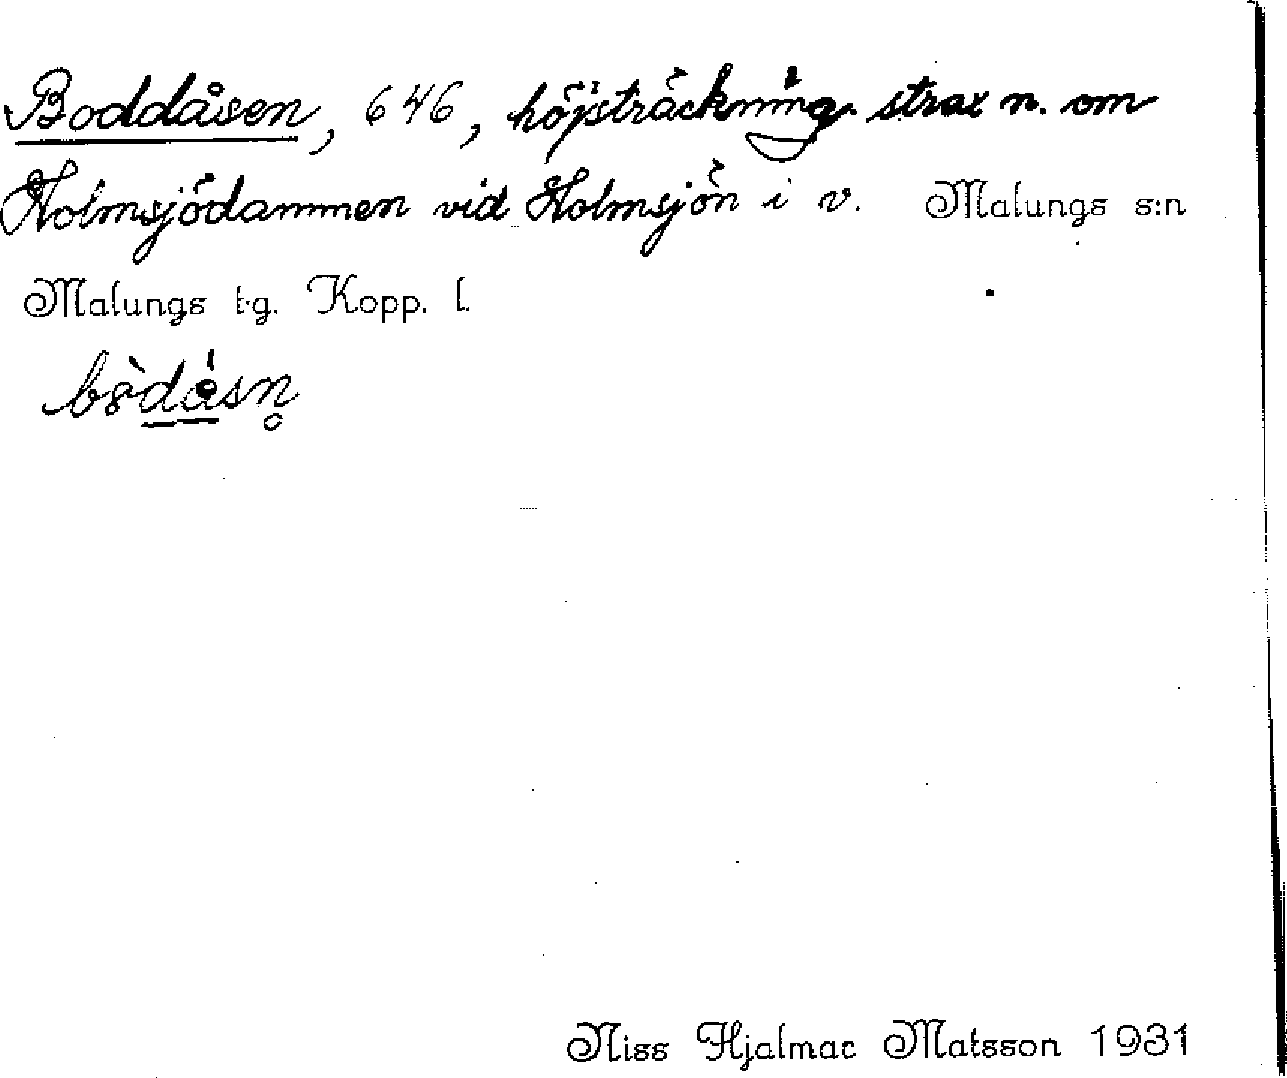 Boddåsen, 646, höjsträckning strax n. om
Holmsjödammen vid Holmsjön i v. Malungs s:n
Malungs t.g. Kopp. l.
Niss Hjalmar Matsson 1931